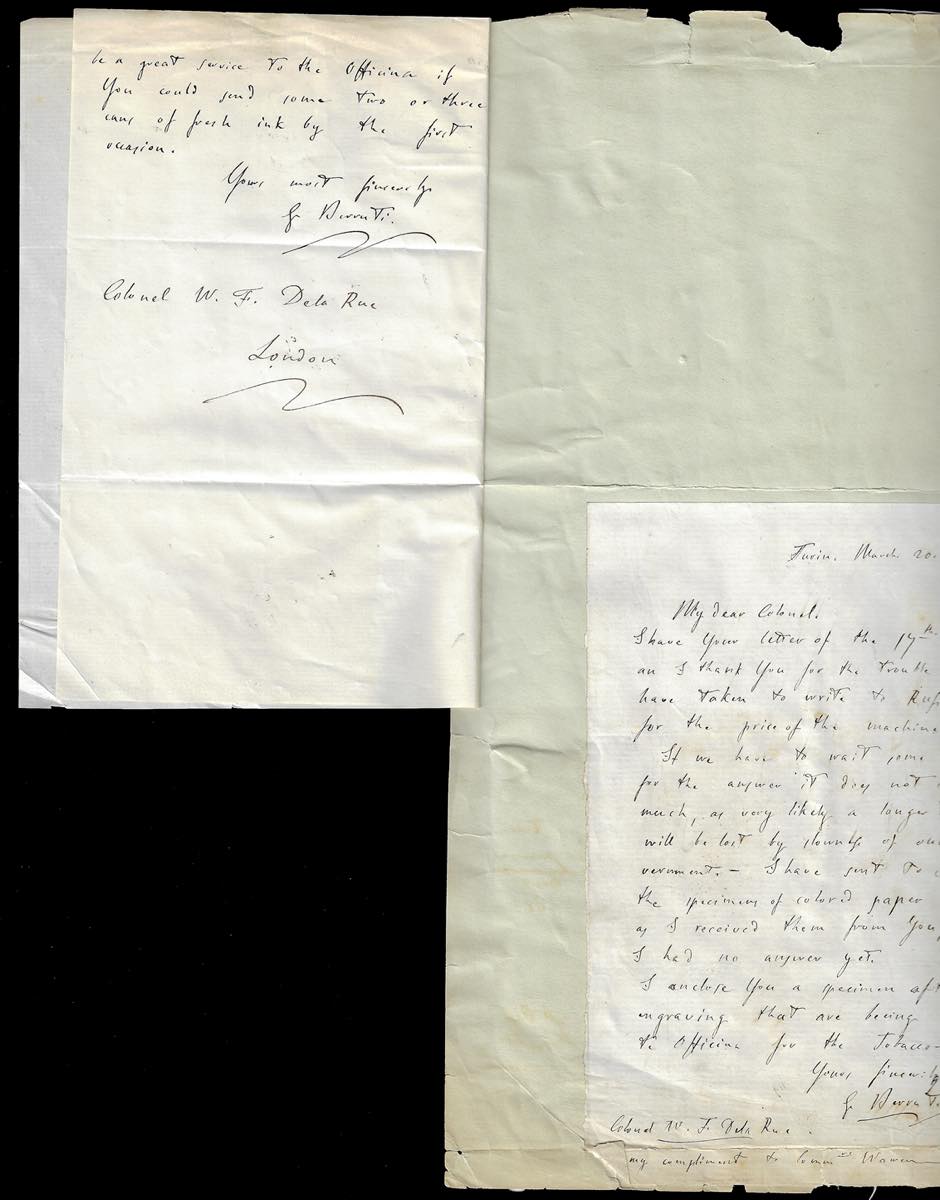 be a great service to the Officina if
You could send some two or three
cans of fresh ink by the first
occasion.
Yours most sincerely
G Berruti.
Colonel W. F. Dela Rue
London
Turin. March 20.
My dear Colonel.
I have Your letter of the 17th
an I thank You for the trouble
have taken to write to
for the price of the machine
If we have to wait some
for the answer it does not
much, as very likely a longer
will be lost by slowness of
vernment. – I have sent to
the specimens of colored paper
as I received them from You,
I had no answer yet.
I enclose You a specimen
engraving that are being
te Officina for the Tobacco-
Yours sincerely
G. Berruti
Colonel W. F. Dela Rue.
my compliment to